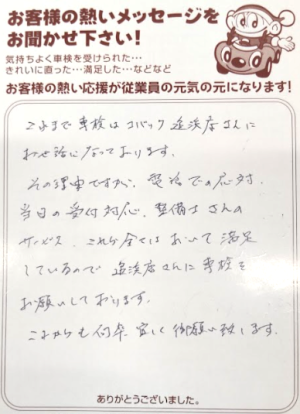 お客様の熱いメッセージを
お聞かせ下さい!
気持ちよく車検を受けられた…
きれいに直った…満足した…などなど
お客様の熱い応援が従業員の元気の元になります!
これまで車検はコバック追浜店さんに
お世話になっております。
その理由ですが、電話での応対、
当日の受付対応、整備士さんの
サービス、これら全てにおいて満足
しているので追浜店さんに車検を
お願いしております。
これからも何卒、宜しく御願い致します。
ありがとうございました。